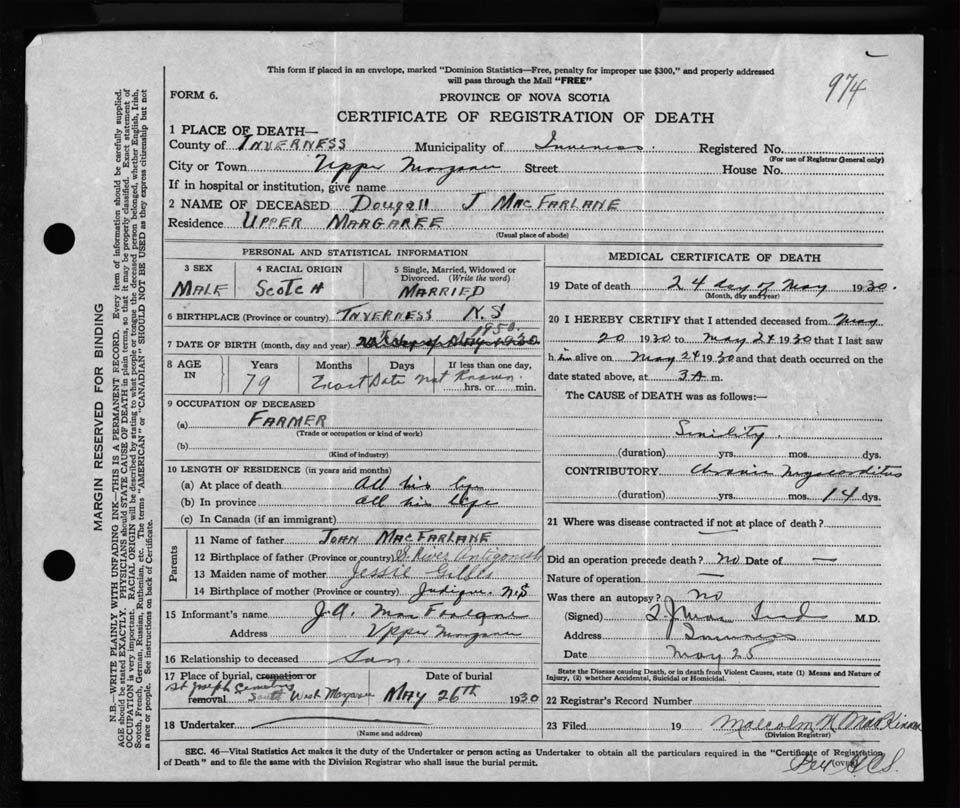 This form if placed in an envelope, marked "Dominion Statistics—Free, penalty for improper use $300," and properly addressed
will pass through the Mail "FREE"
974
FORM 6.
PROVINCE OF NOVA SCOTIA
CERTIFICATE OF REGISTRATION OF DEATH
1 PLACE OF DEATH—
County of INVERNESS Municipality of Inverness. Registered No.
(For use of Registrar General only)
City or Town Upper Margaree Street House No.
If in hospital or institution, give name
2 NAME OF DECEASED Dougall J MacFARLANE
Residence UPPER MARGAREE
(Usual place of abode)
PERSONAL AND STATISTICAL INFORMATION
3 SEX 4 RACIAL ORIGIN 5 Single, Married, Widowed or
Divorced. (Write the word)
MALE SCOTCH MARRIED
6 BIRTHPLACE (Province or country) INVERNESS N.S
7 DATE OF BIRTH (month, day and year)
8 AGE IN Years Months Days If less than one day,
79 Exact Date not Known. hrs. or min.
9 OCCUPATION OF DECEASED
(a) FARMER
(Trade or occupation or kind of work)
(b)
(Kind of industry)
10 LENGTH OF RESIDENCE (in years and months)
(a) At place of death all his life
(b) In province all his life
(c) In Canada (if an immigrant)
Parents
11 Name of father JOHN MACFARLANE
12 Birthplace of father (Province or country) River Antigonish
13 Maiden name of mother Jessie Gillis
14 Birthplace of mother (Province or country) Judique N.S
15 Informant's name J.A. MacFarlane
Address Upper Margaree
16 Relationship to deceased Son.
17 Place of burial, cremation or removal Date of burial
St Joseph Cemetery
South West Margaree May 26th 1930
18 Undertaker
(Name and address)
MEDICAL CERTIFICATE OF DEATH
19 Date of death 24 day of May 1930.
(Month, day and year)
20 I HEREBY CERTIFY that I attended deceased from May
20 1930 to May 24 1930 that I last saw
him alive on May 24 1930 and that death occurred on
date stated above, at 3 A m.
The CAUSE of DEATH was as follows:—
Senility
(duration) yrs. mos. dys.
CONTRIBUTORY Chronic Myocarditis
(duration) yrs. mos. 14 dys.
21 Where was disease contracted if not at place of death?
Did an operation precede death? No Date of —
Nature of operation —
Was there an autopsy? No
(Signed) M.D.
Address Inverness
Date May 25
State the Disease causing Death, or in death from Violent Causes, state (1) Means and Nature of
Injury, (2) whether Accidental, Suicidal or Homicidal.
22 Registrar's Record Number
23 Filed 19 Malcolm H. MacKinnon
(Division Registrar)
SEC. 46—Vital Statistics Act makes it the duty of the Undertaker or person acting as Undertaker to obtain all the particulars required in the "Certificate of Registration
of Death" and to file the same with the Division Registrar who shall issue the burial permit.
(over)
MARGIN RESERVED FOR BINDING
N.B.—WRITE PLAINLY WITH UNFADING INK—THIS IS A PERMANENT RECORD. Every item of information should be carefully supplied.
AGE should be stated EXACTLY. PHYSICIANS should STATE CAUSE OF DEATH in plain terms, so that it may be properly classified. Exact statement of
OCCUPATION is very important. RACIAL ORIGIN will be described by stating to what people or tongue the deceased person belonged, whether English, Irish,
Scotch, French, German, Russian, Ruthenian, etc. The terms "AMERICAN" or "CANADIAN" SHOULD NOT BE USED as they express citizenship but not
a race or people. See instructions on back of Certificate.